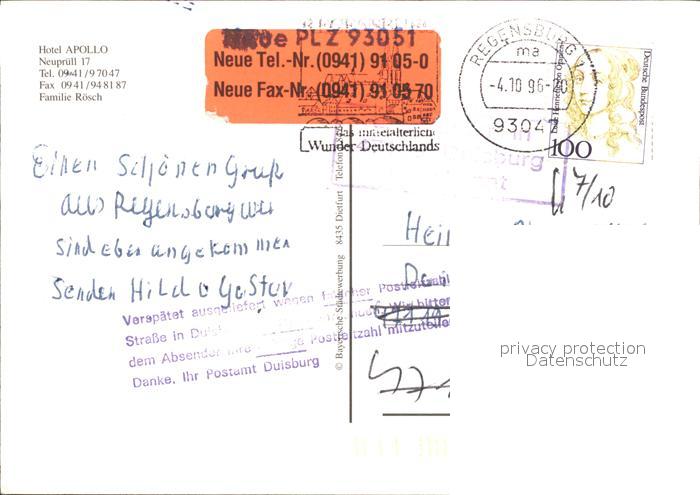 Hotel APOLLO
Neuprüll 17
Tel. 0941/97047
Fax 0941/948187
Familie Rösch
Neue PLZ 93051
Neue Tel.-Nr. (0941) 91 05-0
Neue Fax-Nr. (0941) 91 05 70
das mittelalterliche
Wunder Deutschlands
REGENSBURG 1
ma
-4.10 96-20
9304
Deutsche Bundespost
100
Duisburg
7/10
Einen Schönen Gruß
aus Regensburg wir
sind eben angekommen
Senden Hilde Gustav
Verspätet ausgeliefert wegen falscher Postleitzahl
Straße in Duisburg Wir bitten
dem Absender Ihre Postleitzahl mitzuteilen
Danke. Ihr Postamt Duisburg
© Bayerische Städtewerbung 8435 Dietfurt Telefon
Hein
privacy protection
Datenschutz